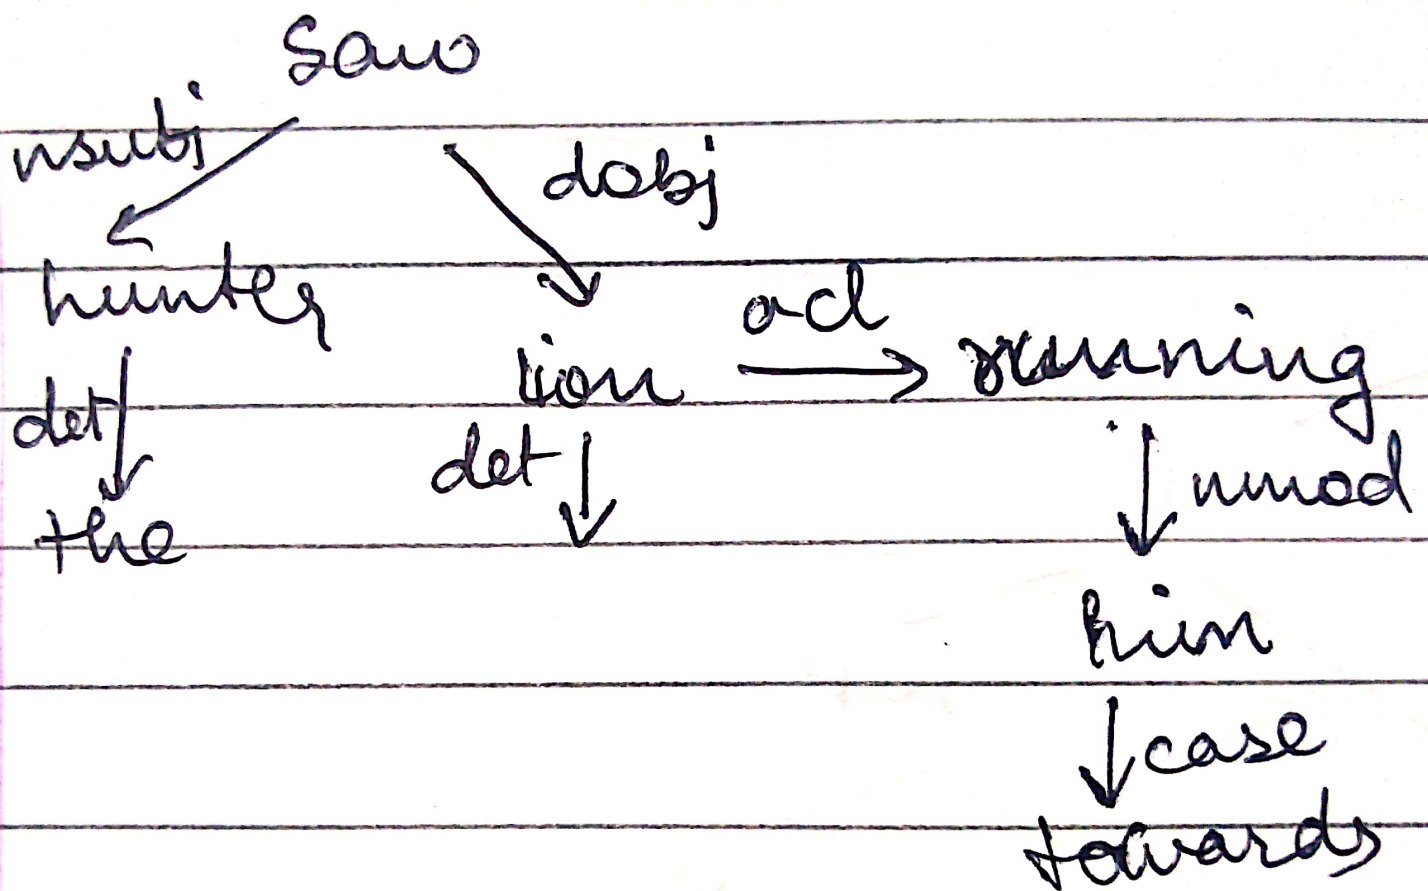 Saw
nsubj
dobj
hunter
acl
lion running
det
det nmod
the
him
case
towards